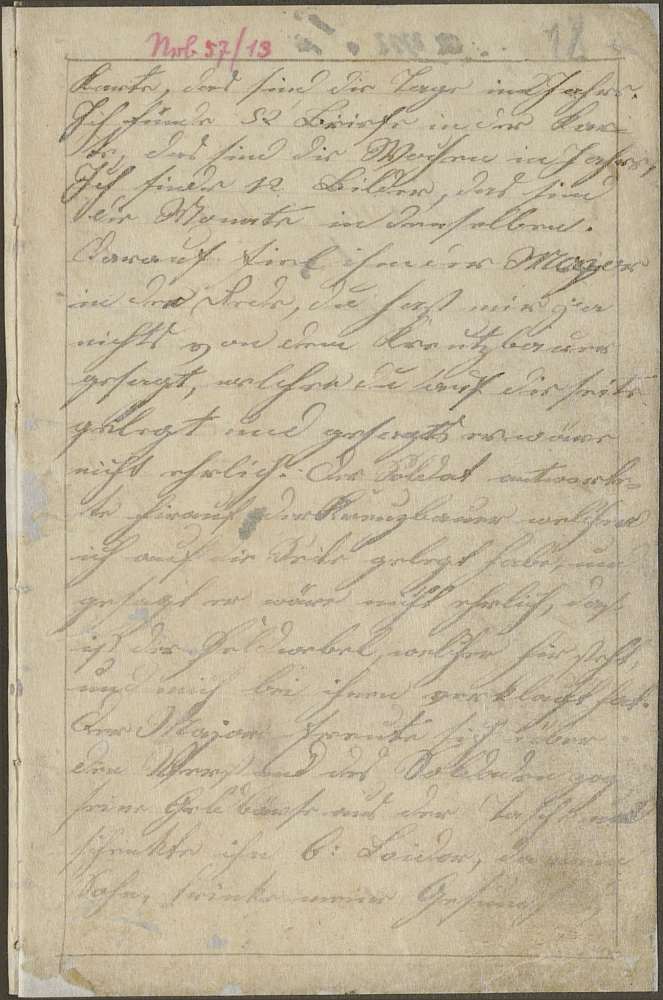 Nrb 57/13
18
Karte, das sind die Tage im Jahre.
Ich finde 52 Briefe in der Kar-
te, das sind die Wochen im Jahre,
Ich finde 12 Bilder, das sind
die Monate in denselben.
Darauf fiel ihm der Mayor
in der Rede, du hast mir ja
nichts von dem Kreutzbauer
gesagt, welchen du auf die seite
gelegt und gesagts er wäre
nicht ehrlich. Der Soldat antworte-
te hierauf der Kreuzbauer welchen
ich auf die Seite gelegt habe, und
gesagt er wäre nicht ehrlich, das
ist der Feldwebel, welcher hir steht,
und mich bei ihnen verklagt hat.
Der Major freute sich über
den Verstand des Soldaden zog
seine Geldbörse aus der Tasche und
schenkte ihn 6: Loidor, da mein
Sohn, trinke meine Gesund